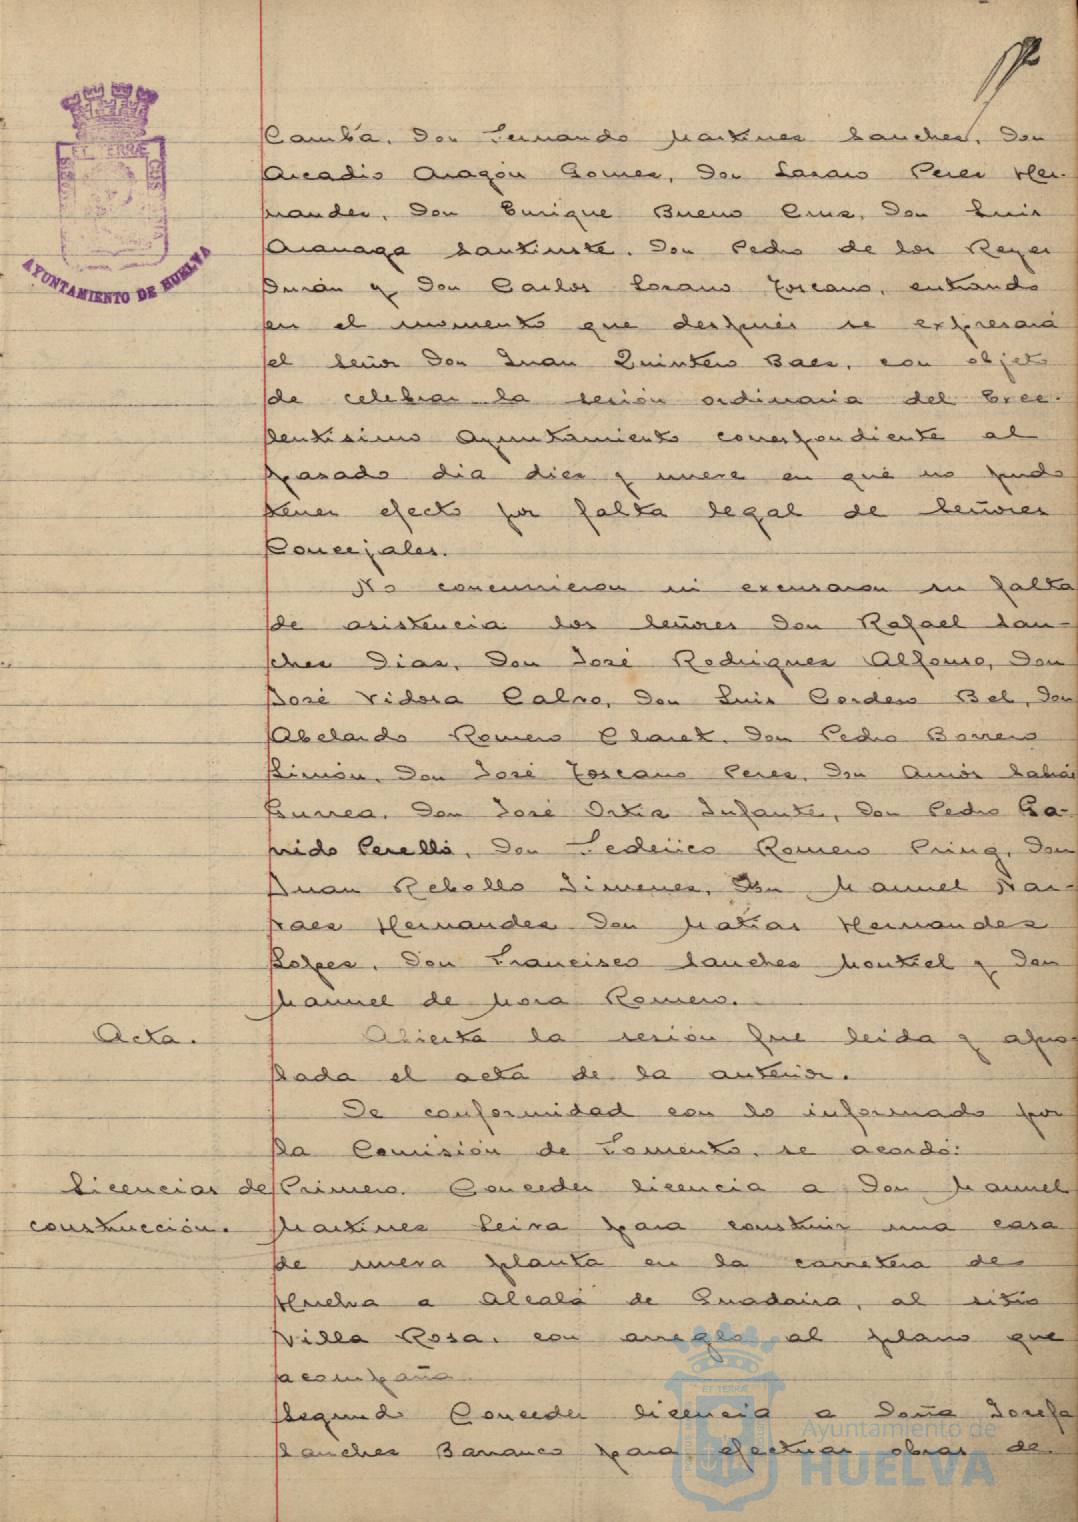 ET TERRÆ
AYUNTAMIENTO DE HUELVA
Camba, Don Fernando Martinez Sanchez, Don
Arcadio Aragón Gomez, Don Lazaro Perez Her-
nandez, Don Enrique Bueno Cruz, Don Luis
Aranaga Santiuste, Don Pedro de los Reyes
Durán y Don Carlos Lozano Toscano, entrando
en el momento que después se expresará
el señor Don Juan Quintero Baez, con objeto
de celebrar la sesión ordinaria del Exce-
lentísimo Ayuntamiento correspondiente al
pasado dia diez y nueve en qué no pudo
tener efecto por falta legal de Señores
Concejales.
No concurrieron ni excusaron su falta
de asistencia los Señores Don Rafael San-
chez Diaz, Don José Rodriguez Alfonso, Don
José Vidosa Calvo, Don Luis Cordero Bel, Don
Abelardo Romero Claret, Don Pedro Borrero
Limón, Don José Toscano Perez, Don Amós Sabrás
Gurrea, Don José Ortiz Infante, Don Pedro Ga-
rrido Perelló, Don Federico Romero Pring, Don
Juan Rebollo Jimenez, Don Manuel Nar-
vaez Hernandez Don Matias Hernandez
Lopez, Don Francisco Sanchez Montiel y Don
Manuel de Mora Romero.
Acta.
Abierta la sesión fue leida y apro-
bada el acta de la anterior.
De conformidad con lo informado por
la Comisión de Fomento, se acordó:
Licencias de
construcción.
Primero. Conceder licencia a Don Manuel
Martinez Leiva para construir una casa
de nueva planta en la carretera de
Huelva a Alcalá de Guadaira, al sitio
Villa Rosa, con arreglo al plano que
acompaña.
Segundo Conceder licencia a Doña Josefa
Sanchez Barranco para efectuar obras de
Ayuntamiento de
HUELVA